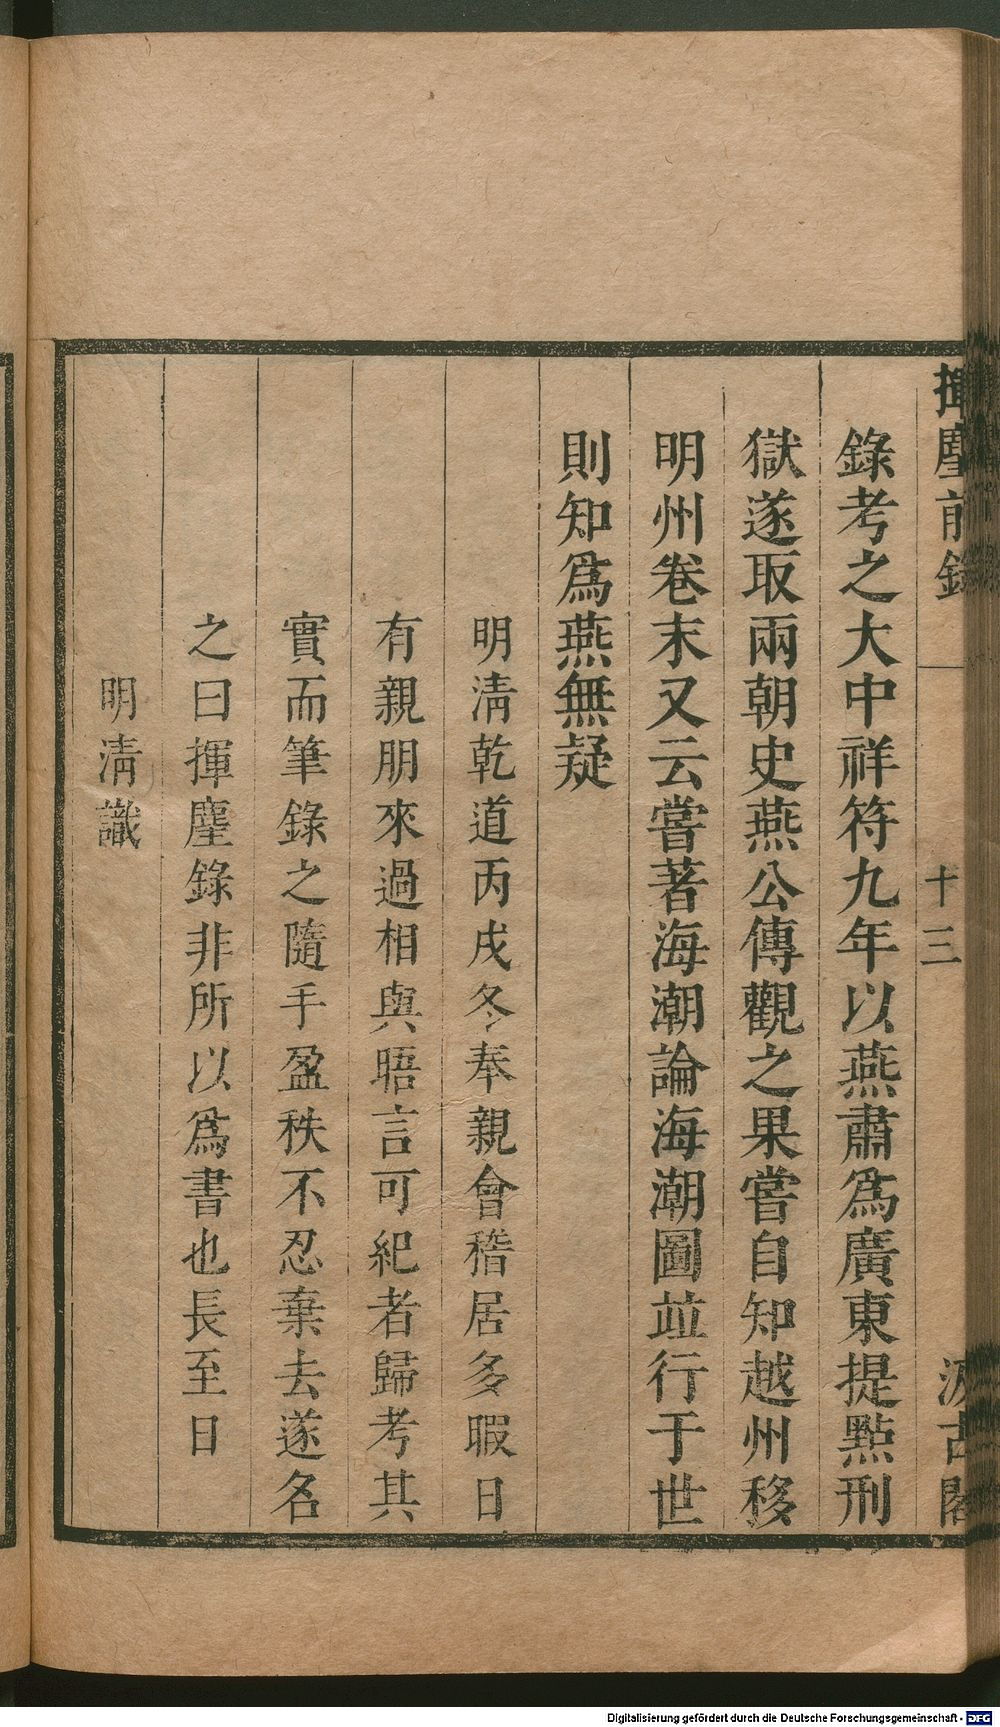 揮麈前錄
十三
汲古閣
錄考之大中祥符九年以燕肅爲廣東提點刑
獄遂取兩朝史燕公傳觀之果嘗自知越州移
明州卷末又云嘗著海潮論海潮圖竝行于世
則知爲燕無疑
明清乾道丙戌冬奉親會稽居多暇日
有親朋來過相與晤言可紀者歸考其
實而筆錄之隨手盈秩不忍棄去遂名
之曰揮麈錄非所以爲書也長至日
明清識
Digitalisierung gefördert durch die Deutsche Forschungsgemeinschaft - DFG